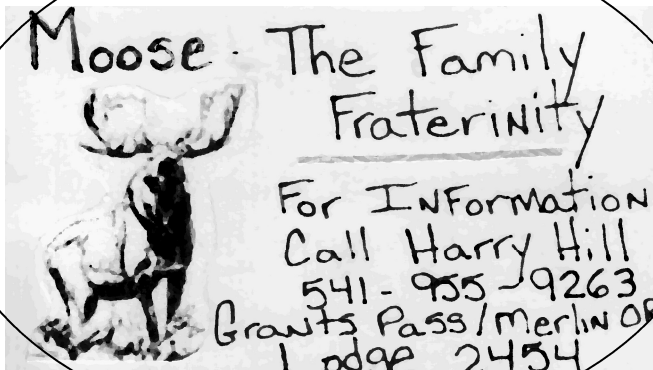 Moose. The Family
Fraterinity
For INFormation
Call Harry Hill
541-955-9263
Grants Pass/Merlin OR
Lodge 2454